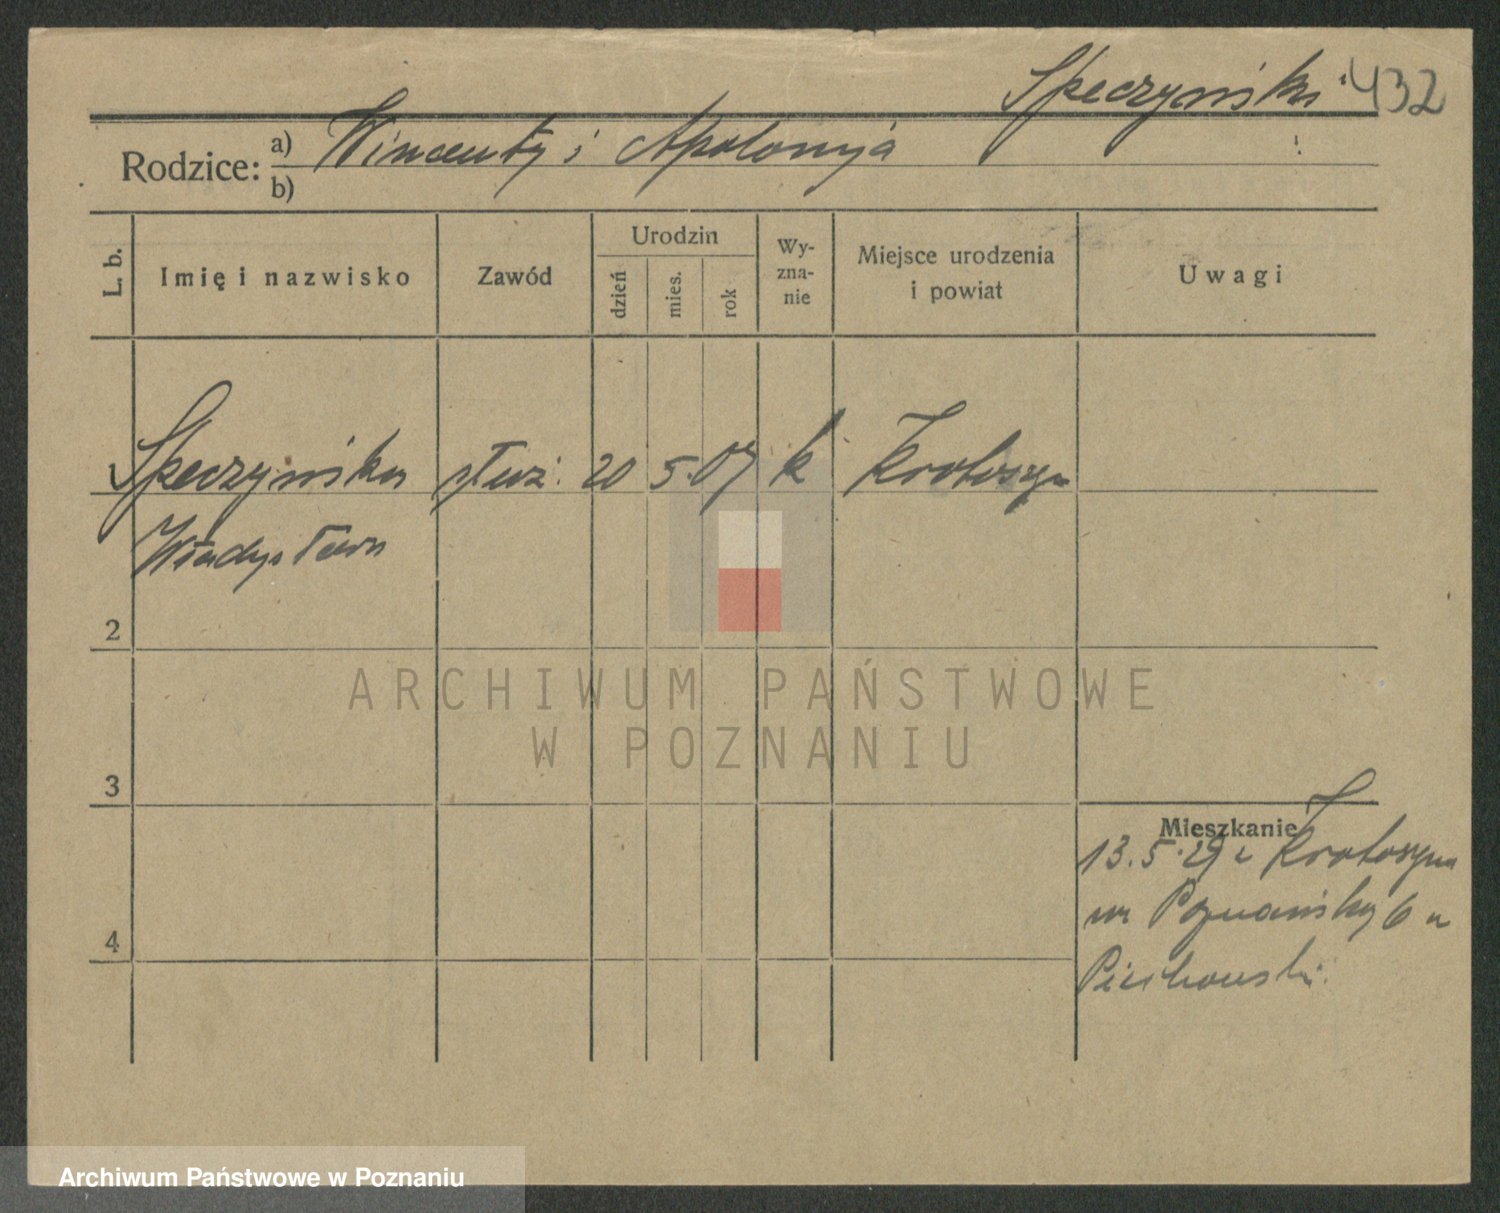 Speczyńska 432
Rodzice: a) Wincenty i Apolonja
b)
L. b. Imię i nazwisko Zawód Urodzin dzień mies. rok Wy-zna-nie Miejsce urodzenia i powiat Uwagi
1 Speczyńska służ. 20 5. 07 k Krotoszyn
Władysława
2
ARCHIWUM PAŃSTWOWE
W POZNANIU
3
Mieszkanie
13.5.29 z Krotoszyna
Poznańska 6 u
Piechowski
4
Archiwum Państwowe w Poznaniu